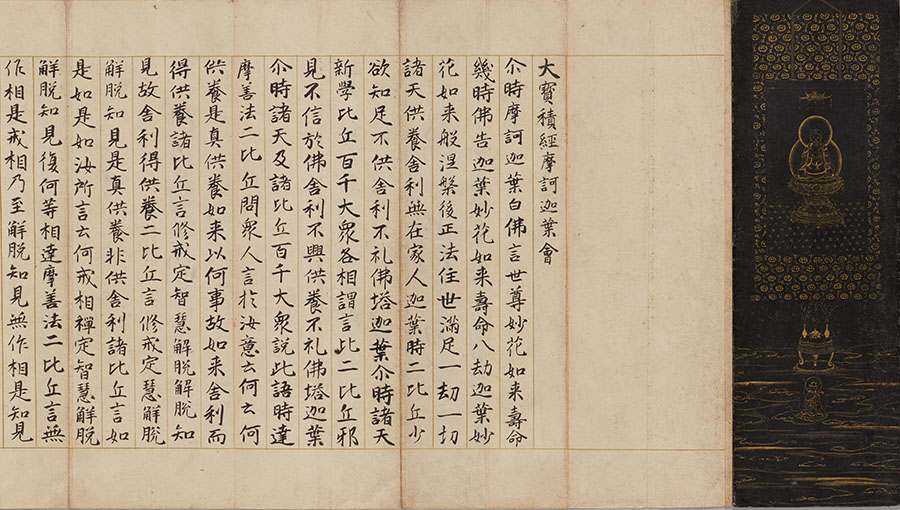 大寶積經摩訶迦葉會
尒時摩訶迦葉白佛言世尊妙花如来壽命
幾時佛告迦葉妙花如来壽命八劫迦葉妙
花如来般涅槃後正法住世滿足一劫一切
諸天供養舍利無在家人迦葉時二比丘少
欲知足不供舍利不礼佛塔迦葉尒時諸天
新學比丘百千大衆各相謂言此二比丘邪
見不信於佛舍利不興供養不礼佛塔迦葉
尒時諸天及諸比丘百千大衆說此語時達
摩善法二比丘問衆人言於汝意云何云何
供養是真供養如来以何事故如来舍利而
得供養諸比丘言修戒定智慧解脫解脫知
見故舍利得供養二比丘言修戒定慧解脫
解脫知見是真供養非供舍利諸比丘言如
是如是如汝所言云何戒相禪定智慧解脫
解脫知見復何等相達摩善法二比丘言無
作相是戒相乃至解脫知見無作相是知見